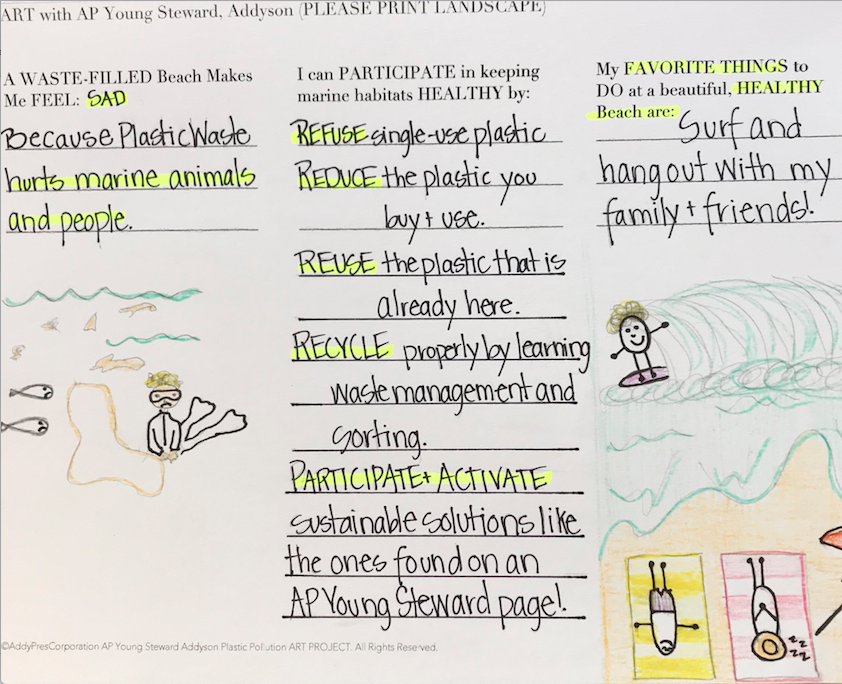 ART with AP Young Steward, Addyson (PLEASE PRINT LANDSCAPE)
A WASTE-FILLED Beach Makes
Me FEEL: SAD
Because Plastic Waste
hurts marine animals
and people.
I can PARTICIPATE in keeping
marine habitats HEALTHY by:
REFUSE single-use plastic
REDUCE the plastic you
buy + use.
REUSE the plastic that is
already here.
RECYCLE properly by learning
waste management and
sorting.
PARTICIPATE + ACTIVATE
sustainable solutions like
the ones found on an
AP Young Steward page!
My FAVORITE THINGS to
DO at a beautiful, HEALTHY
Beach are: Surf and
hang out with my
family + friends!
zz
zz
©AddyPresCorporation AP Young Steward Addyson Plastic Pollution ART PROJECT. All Rights Reserved.